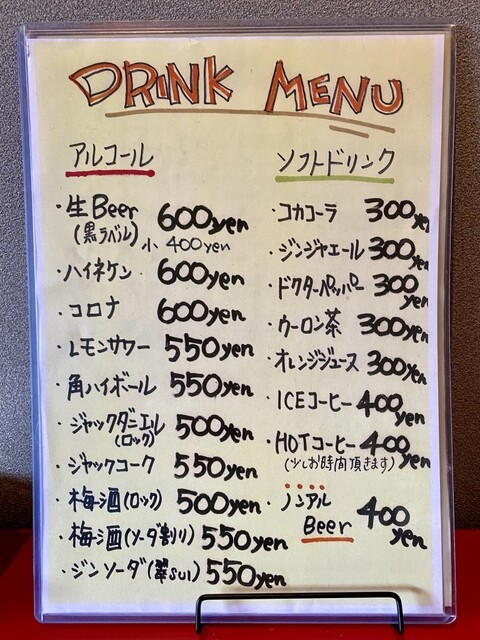 DRINK MENU
アルコール
・生Beer 600yen
(黒ラベル) 小 400yen
・ハイネケン 600yen
・コロナ 600yen
・レモンサワー 550yen
・角ハイボール 550yen
・ジャックダニエル 500yen
(ロック)
・ジャックコーク 550yen
・梅酒(ロック) 500yen
・梅酒(ソーダ割り) 550yen
・ジンソーダ(翠SUI) 550yen
ソフトドリンク
・コカコーラ 300yen
・ジンジャエール 300yen
・ドクターペッパー 300yen
・ウーロン茶 300yen
・オレンジジュース 300yen
・ICEコーヒー 400yen
・HOTコーヒー 400yen
(少しお時間頂きます)
・ノンアル
Beer 400yen